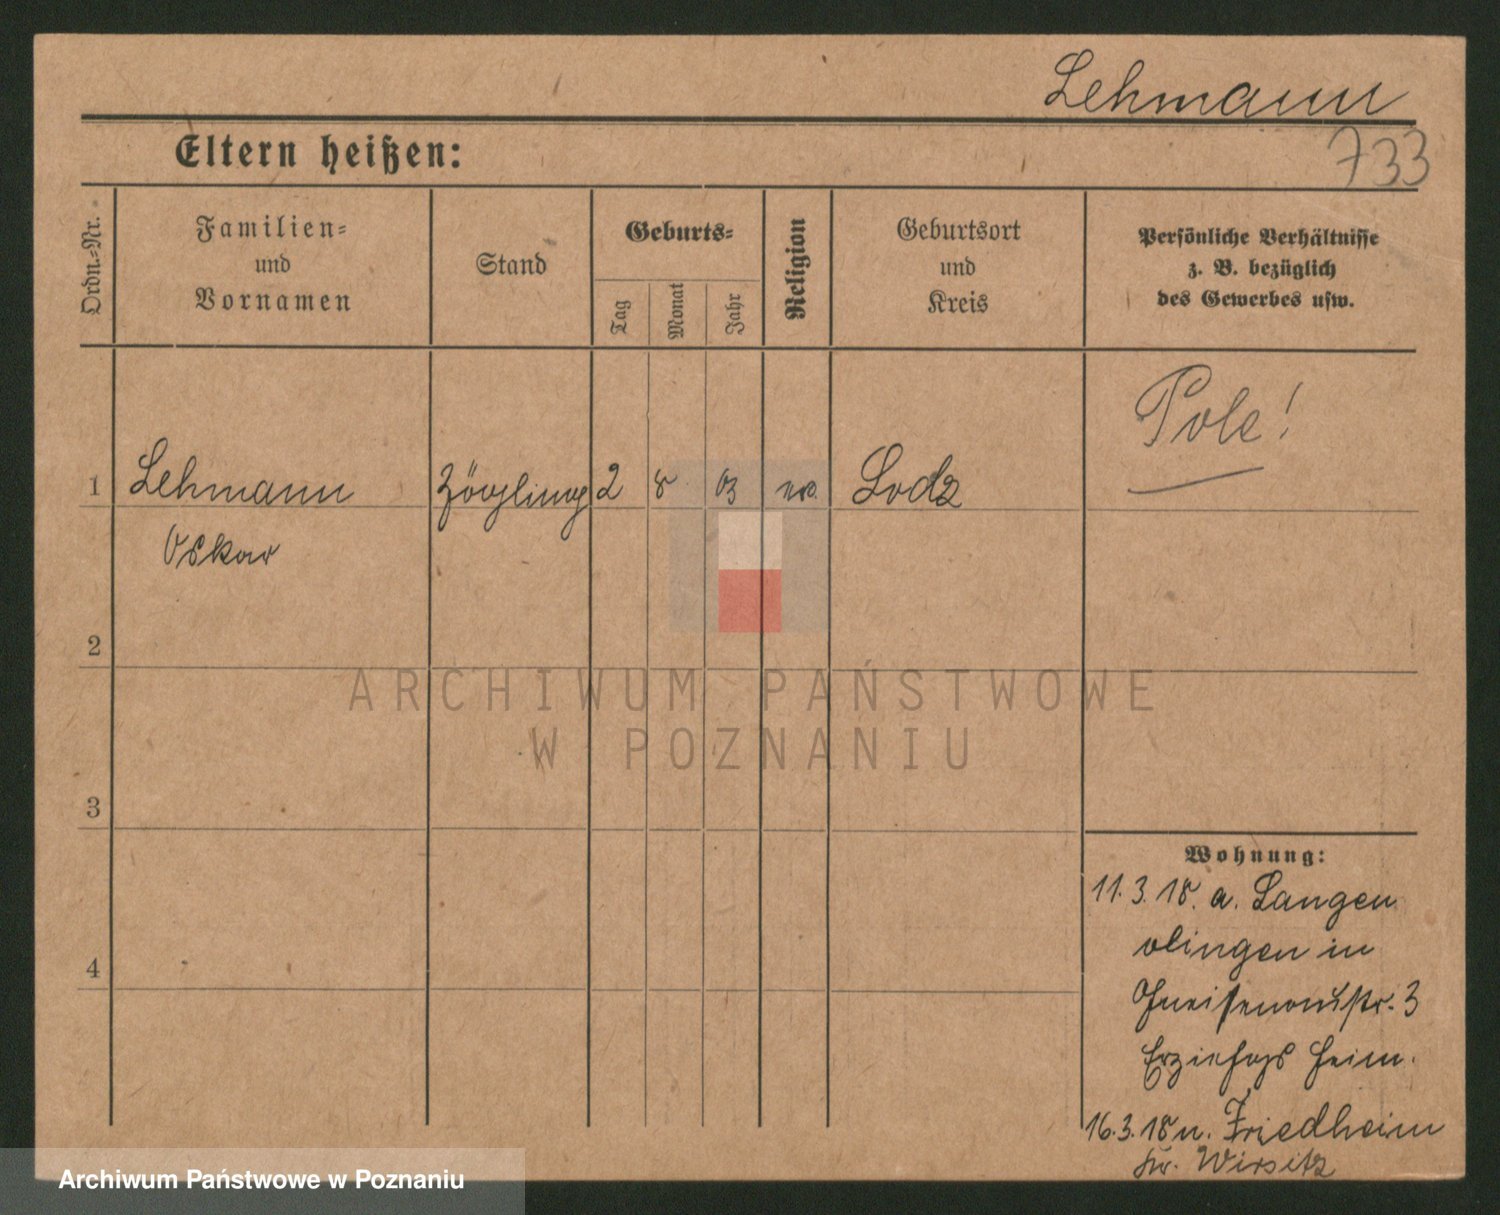 Lehmann
733
Eltern heißen:
Ordn.-Nr.
Familien-
und
Vornamen
Stand
Geburts-
Tag
Monat
Jahr
Religion
Geburtsort
und
Kreis
Persönliche Verhältnisse
z. B. bezüglich
des Gewerbes usw.
Pole!
1 Lehmann Zögling 2 8 03 Lodz
Oskar
2
3
4
Wohnung:
11.3.18. a. Langen
olingen in
Gneisenaustr. 3
Erziehgs heim.
16.3.18 n. Friedheim
Kr. Wirsitz
ARCHIWUM PAŃSTWOWE
W POZNANIU
Archiwum Państwowe w Poznaniu